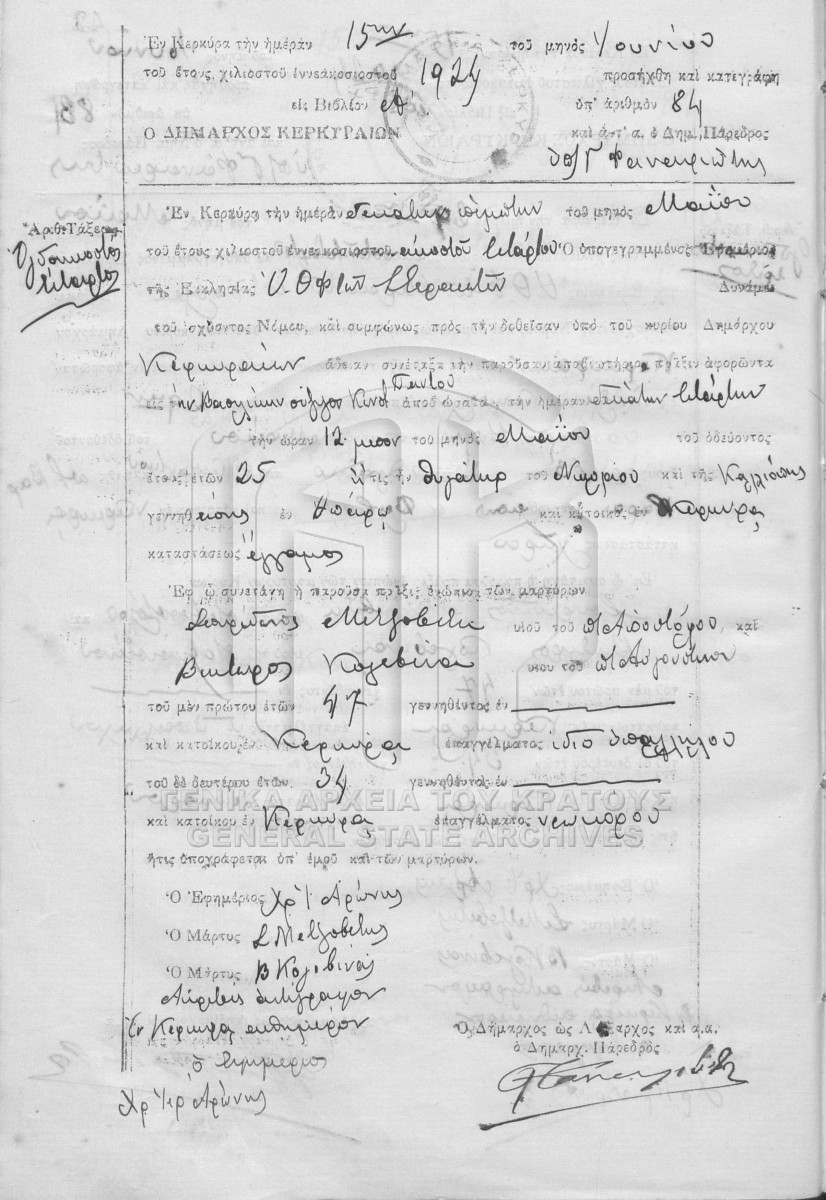 Ἐν Κερκύρᾳ τὴν ἡμέραν 15ην τοῦ μηνὸς Ἰουνίου
τοῦ ἔτους χιλιοστοῦ ἐννεακοσιοστοῦ 1924 προσήχθη καὶ κατεγράφη
εἰς Βιβλίον Α΄. ὑπ' ἀριθμὸν 84
Ο ΔΗΜΑΡΧΟΣ ΚΕΡΚΥΡΑΙΩΝ καὶ ἀντ' α. ὁ Δημ. Πάρεδρος
Ἀριθ. Τάξεως
Ὀγδοηκοστὸς
τέταρτος
Ἐν Κερκύρᾳ τὴν ἡμέραν δεκάτην πέμπτην τοῦ μηνὸς Μαΐου
τοῦ ἔτους χιλιοστοῦ ἐννεακοσιοστοῦ εἰκοστοῦ τετάρτου Ὁ ὑπογεγραμμένος Ἐφημέριος
τῆς Ἐκκλησίας Υ. Θ Δυνάμει
τοῦ ἰσχύοντος Νόμου, καὶ συμφώνως πρὸς τὴν δοθεῖσαν ὑπὸ τοῦ κυρίου Δημάρχου
Κερκυραίων ἄδειαν συνέταξα τὴν παροῦσαν ἀποβιωτήριον πρᾶξιν ἀφορῶντα
εἰς τὴν Βασιλικὴν σύζυγον Κωνστ Παντοῦ ἀποβιώσασαν τὴν ἡμέραν δεκάτην τετάρτην
τὴν ὥραν 12 μεσον τοῦ μηνὸς Μαΐου τοῦ ὁδεύοντος
ἔτους ἐτῶν 25 ἥτις ἦν θυγάτηρ τοῦ Νικολάου καὶ τῆς Καλλιόπης
γεννηθείσης ἐν Ἠπείρῳ καὶ κάτοικος ἐν Κερκύρᾳ
καταστάσεως ἔγγαμος
Ἐφ ᾧ συνετάγη ἡ παροῦσα πρᾶξις ἐνώπιον τῶν μαρτύρων
Σπυρίδωνος Μετζοβίτη υἱοῦ τοῦ π Ἀποστόλου, καὶ
Βίκτωρος Κολεβίνα υἱοῦ τοῦ π Αὐγουστίνου
τοῦ μὲν πρώτου ἐτῶν 47 γεννηθέντος ἐν
καὶ κατοίκου ἐν Κερκύρᾳ ἐπαγγέλματος ἰδιο ὑπαλλήλου
τοῦ δὲ δευτέρου ἐτῶν 34 γεννηθέντος ἐν
ΓΕΝΙΚΑ ΑΡΧΕΙΑ ΤΟΥ ΚΡΑΤΟΥΣ
καὶ κατοίκου ἐν Κερκύρᾳ ἐπαγγέλματος νεωκόρου
GENERAL STATE ARCHIVES
ἥτις ὑπογράφεται ὑπ' ἐμοῦ καὶ τῶν μαρτύρων.
Ὁ Ἐφημέριος Χρ Ἱ Ἀρώνης
Ὁ Μάρτυς Σ Μετζοβίτης
Ὁ Μάρτυς Β Κολεβίνας
Ἀκριβὲς ἀντίγραφον
Ἐν Κερκύρᾳ αὐθημερόν
Ὁ Δήμαρχος ὡς Ληξίαρχος καὶ α.α.
ὁ Δημαρχ. Πάρεδρος
ὁ ἐφημέριος
Χρ Ἱερ Ἀρώνης